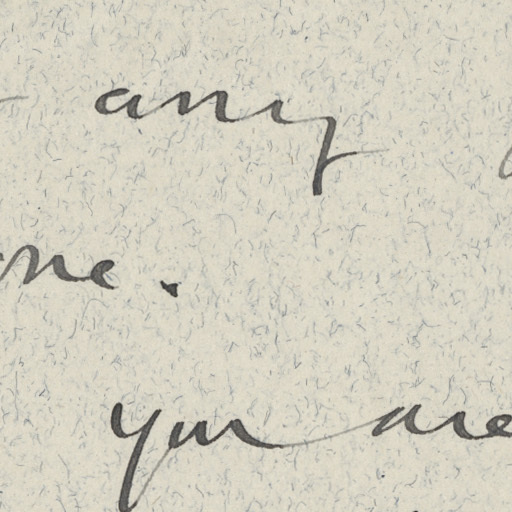 any
ne.
you are